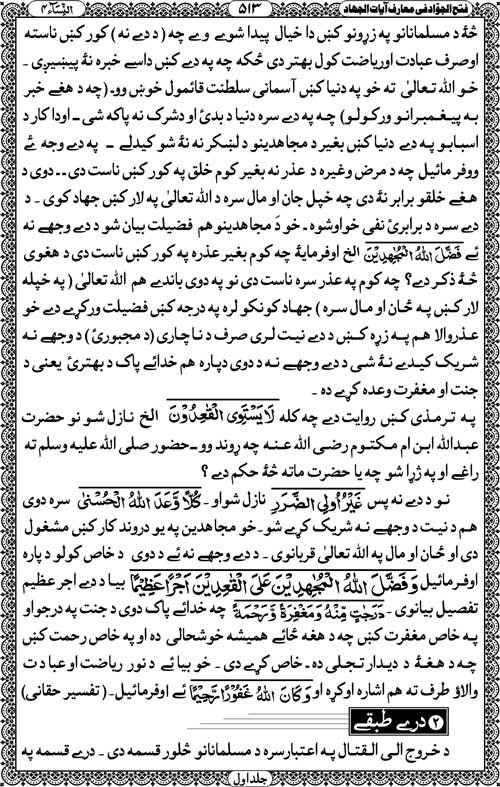 فتح الجوّاد فی معارف آیات الجهاد ۵۱۳ النِّسَآء ۴
څۀ د مسلمانانو په زړونو کښ دا خیال پیدا شوے وے چه (د دے نه) کور کښ ناسته
او صرف عبادت اوریاضت کول بهتر دی ځکه چه په دے کښ داسے خبره نۀ پیښیږی۔
خو الله تعالیٰ ته خو په دنیا کښ آسمانی سلطنت قائمول خوښ وو۔(چه د هغے خبر
به پیغمبرانو ورکولو) چه په دے سره دنیا د بدئ او دشرک نه پاکه شی۔ اودا کار د
اسبابو په دے دنیا کښ بغیر د مجاهدینو د لښکر نه نۀ شو کیدلے۔ په دے وجه ئے
ووفرمائیل چه د مرض وغیره د عذر نه بغیر کوم خلق په کور کښ ناست دی۔۔دوی د
هغے خلقو برابر نۀ دی چه خپل جان او مال سره د الله تعالیٰ په لار کښ جهاد کوی۔ د
دے سره د برابرئ نفی خواوشوه۔ خو دَ مجاهدینو هم فضیلت بیان شو د دے وجهے نه
ئے فَضَّلَ اللهُ الْمُجٰهِدِیْنَ الخ اوفرمایۀ چه کوم بغیر عذره په کور کښ ناست دی د هغوی
څۀ ذکر دے؟ چه کوم په عذر سره ناست دی نو په دوی باندے هم الله تعالیٰ (په خپله
لار کښ په ځان او مال سره) جهاد کونکو لره په درجه کښ فضیلت ورکړے دے خو
عذروالا هم په زړه کښ د دے نیت لری صرف د ناچاری (د مجبورئ) د وجهے نه
شریک کیدے نۀ شی د دے وجهے نه د دوی دپاره هم خدائے پاک د بهترئ یعنی د
جنت او مغفرت وعده کړے ده۔
په ترمذی کښ روایت دے چه کله لَا یَسْتَوِی الْقٰعِدُوْنَ الخ نازل شو نو حضرت
عبدالله ابن ام مکتوم رضی الله عنه چه ړوند وو۔حضور صلی الله علیه وسلم ته
راغے او په ژړا شو چه یا حضرت ماته څۀ حکم دے؟
نو د دے نه پس غَیْرُ اُولِی الضَّرَرِ نازل شواو۔ کُلًّا وَّعَدَ اللهُ الْحُسْنٰی سره دوی
هم د نیت د وجهے نه شریک کړے شو۔خو مجاهدین په یو دروند کار کښ مشغول
دی او ځان او مال په الله تعالیٰ قربانوی۔ د دے وجهے نه ئے د دوی د خاص کولو دپاره
اوفرمائیل وَفَضَّلَ اللهُ الْمُجٰهِدِیْنَ عَلَی الْقٰعِدِیْنَ اَجْرًا عَظِیْمًا بیا د دے اجر عظیم
تفصیل بیانوی۔ دَرَجٰتٍ مِّنْهُ وَمَغْفِرَةً وَّرَحْمَةً چه خدائے پاک دوی د جنت په درجو او
په خاص مغفرت کښ چه د هغه ځائے همیشه خوشحالی ده او په خاص رحمت کښ
چه د هغۀ د دیدار تجلی ده۔ خاص کړے دی۔ خو بیا ئے د نور ریاضت او عبادت
والاؤ طرف ته هم اشاره اوکړه او وَکَانَ اللهُ غَفُوْرًا رَّحِیْمًا ئے اوفرمائیل۔(تفسیر حقانی)
۲ درے طبقے
د خروج الی القتال په اعتبار سره د مسلمانانو څلور قسمه دی۔ درے قسمه په
جلد اول